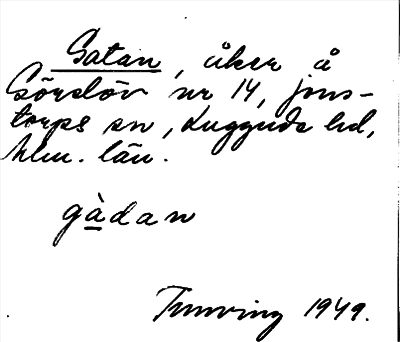 Gatan, åker å
Görslöv nr 14, Jons-
torps sn, Luggude hd,
Mlm. län.
gàdan
Tunving 1949.